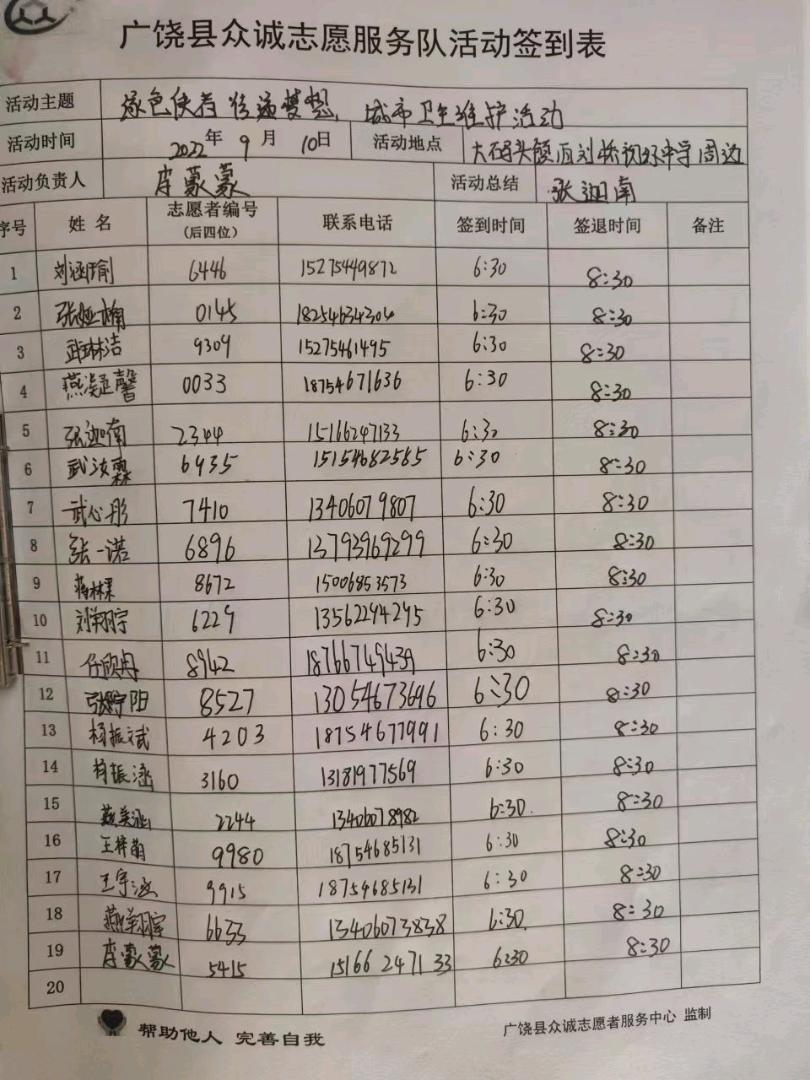 广饶县众诚志愿服务队活动签到表
活动主题 绿色使者 传递梦想，城市卫生维护活动
活动时间 2022年9月10日 活动地点 大码头镇 中学周边
活动负责人 李蒙蒙 活动总结 张迦南
序号 姓名 志愿者编号（后四位） 联系电话 签到时间 签退时间 备注
1 刘涵瑜 6446 15275449872 6:30 8:30
2 张娅楠 0145 18254634304 6:30 8:30
3 武琳洁 9309 15275461495 6:30 8:30
4 燕凝馨 0033 18754671636 6:30 8:30
5 张迦南 2344 15166247133 6:30 8:30
6 武汝霖 6435 15154682565 6:30 8:30
7 武心彤 7410 13406079807 6:30 8:30
8 张一诺 6896 13793969299 6:30 8:30
9 8672 15006853573 6:30 8:30
10 刘翔宇 6229 13562294295 6:30 8:30
11 任欣冉 8942 18766749439 6:30 8:30
12 张宁阳 8527 13054673696 6:30 8:30
13 杨振斌 4203 18754677991 6:30 8:30
14 振涵 3160 13181977569 6:30 8:30
15 燕美涵 2244 13406078982 6:30 8:30
16 王梓萌 9980 18754685131 6:30 8:30
17 王宇涵 9915 18754685131 6:30 8:30
18 燕翔宇 6633 13406073838 6:30 8:30
19 李蒙蒙 5415 15166247133 6:30 8:30
20
帮助他人 完善自我
广饶县众诚志愿者服务中心 监制